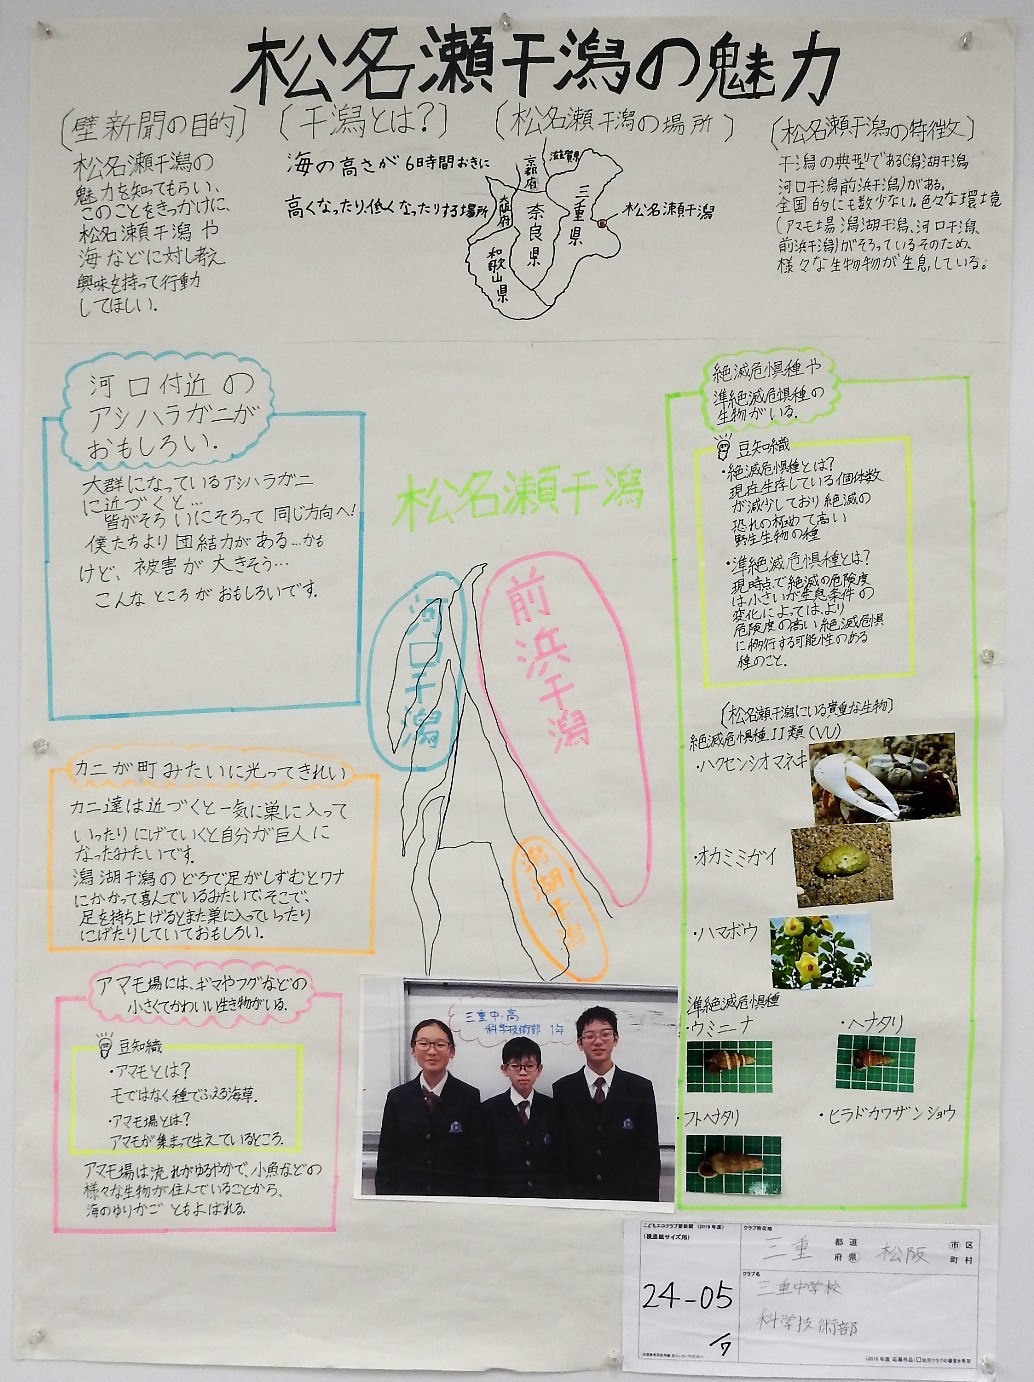 松名瀬干潟の魅力
〔壁新聞の目的〕
松名瀬干潟の
魅力を知ってもらい、
このことをきっかけに、
松名瀬干潟や
海などに対し考え
興味を持って行動
してほしい.
〔干潟とは?〕
海の高さが6時間おきに
高くなったり、低くなったりする場所
〔松名瀬干潟の場所〕
滋賀県
京都府
大阪府
奈良県
三重県
和歌山県
松名瀬干潟
〔松名瀬干潟の特徴〕
干潟の典型である(潟湖干潟
河口干潟前浜干潟)がある。
全国的にも数少ない。色々な環境
(アマモ場潟湖干潟、河口干潟、
前浜干潟)がそろっているそのため、
様々な生物物が生息している。
河口付近の
アシハラガニが
おもしろい.
大群になっているアシハラガニ
に近づくと…
皆がそろいにそろって同じ方向へ!
僕たちより団結力がある…かも
けど、被害が大きそう…
こんなところがおもしろいです.
カニが町みたいに光ってきれい
カニ達は近づくと一気に巣に入って
いったりにげていくと自分が巨人に
なったみたいです.
潟湖干潟のどろで足がしずむとワナ
にかかって喜んでいるみたいで、そこで、
足を持ち上げるとまた巣に入っていったり
にげたりしていておもしろい.
アマモ場には、ギマやフグなどの
小さくてかわいい生き物がいる.
豆知識
・アマモとは?
モではなく種でふえる海草.
・アマモ場とは?
アマモが集まって生えているところ.
アマモ場は流れがゆるやかで、小魚などの
様々な生物が住んでいることから、
海のゆりかごともよばれる.
松名瀬干潟
河口干潟
前浜干潟
潟湖干潟
三重中・高
科学技術部 1年
絶滅危惧種や
準絶滅危惧種の
生物がいる.
豆知織
・絶滅危惧種とは?
現在生存している個体数
が減少しており絶滅の
恐れの極めて高い
野生生物の種
・準絶滅危惧種とは?
現時点で絶滅の危険度
は小さいが生息条件の
変化によっては、より
危険度の高い絶滅危惧
に移行する可能性のある
種のこと.
〔松名瀬干潟にいる貴重な生物〕
絶滅危惧種II類(VU)
・ハクセンシオマネキ
・オカミミガイ
・ハマボウ
準絶滅危惧種
・ウミニナ
・ヘナタリ
・フトヘナタリ
・ヒラドカワザンショウ
こどもエコクラブ壁新聞(2019年度)
(模造紙サイズ用)
24-05
クラブ所在地
三重 都道府県 松阪 市区町村
クラブ名
三重中学校
科学技術部